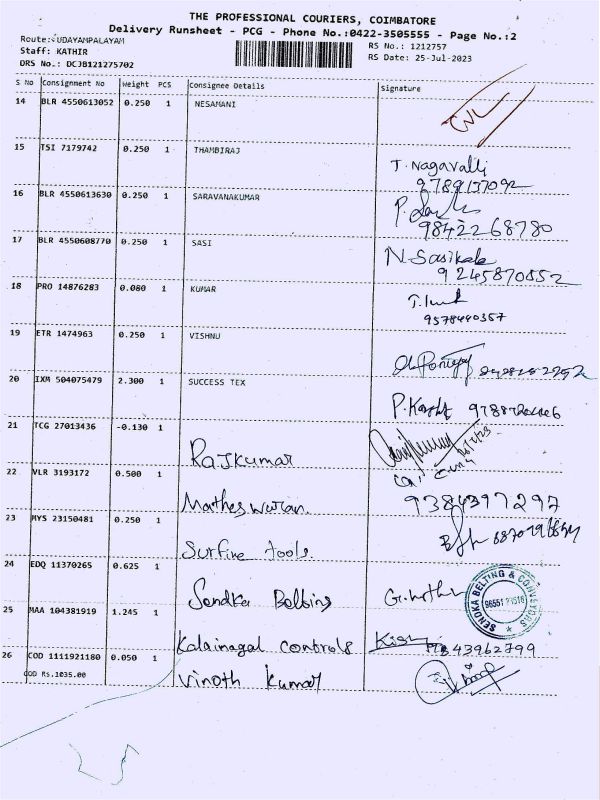 THE PROFESSIONAL COURIERS, COIMBATORE
Delivery Runsheet - PCG - Phone No.:0422-3505555 - Page No.:2
Route: UDAYAMPALAYAM RS No.: 1212757
Staff: KATHIR RS Date: 25-Jul-2023
DRS No.: DCJB121275702
S No Consignment No Weight PCS Consignee Details Signature
14 BLR 4550613052 0.250 1 NESAMANI
15 TSI 7179742 0.250 1 THAMBIRAJ T. Nagavalli
9789137092
16 BLR 4550613630 0.250 1 SARAVANAKUMAR
9842268780
17 BLR 4550608770 0.250 1 SASI N. Sasikala
9245870552
18 PRO 14876283 0.080 1 KUMAR
9578440357
19 ETR 1474963 0.250 1 VISHNU
20 IXM 504075479 2.300 1 SUCCESS TEX
21 TCG 27013436 -0.130 1 Rajkumar
22 VLR 3193172 0.500 1 Matheswaran. 9384397297
23 MYS 23150481 0.250 1 Surfine tools.
24 EDQ 11370265 0.625 1 Sendka Belting
SENDKA BELTING & CONVEYORS
25 MAA 104381919 1.245 1 Kalainagal controls
26 COD 1111921180 0.050 1 Vinoth kumar
COD Rs.1035.00